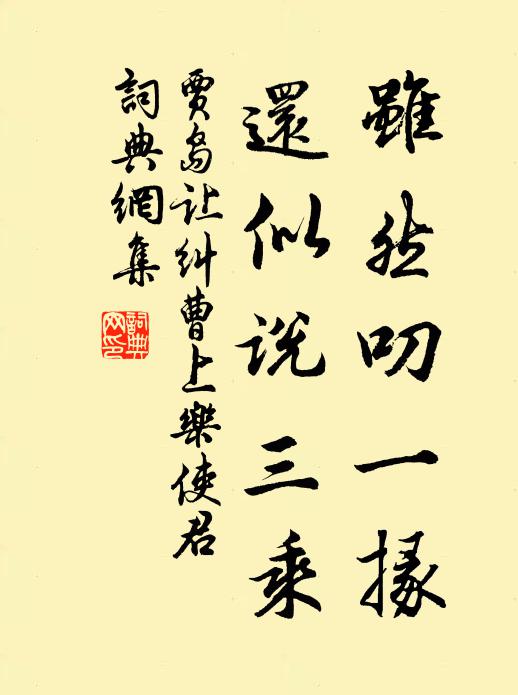 雖然叨一掾
還似説三乘
賈島让糾曹上樂使君
詞典網集
詞典
网印